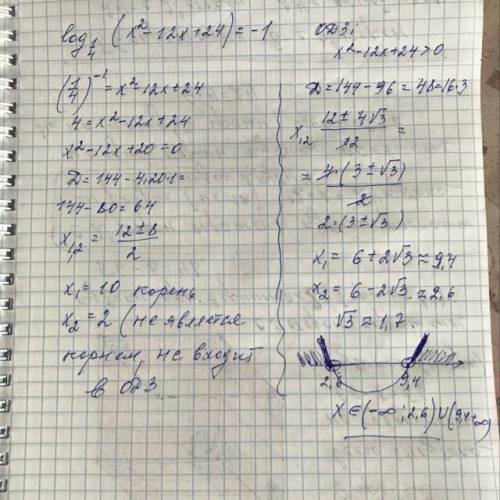 log_{1/4} (x²-12x+24) = -1
(1/4)^{-1} = x²-12x+24
4 = x²-12x+24
x²-12x+20=0
D = 144-4·20·1=
144-80=64
x_{1,2} = (12±8)/2
x₁=10 корень
x₂=2 (не является
корнем, не входит
в ОДЗ
ОДЗ:
x²-12x+24>0
D=144-96=48=16·3
x_{1,2} (12±4√3)/2 =
= 4·(3±√3)/2
2·(3±√3)
x₁= 6+2√3≈9,4
x₂= 6-2√3≈2,6
√3≈1,7.
2,6 9,4
x∈(-∞;2,6)∪(9,4+∞)